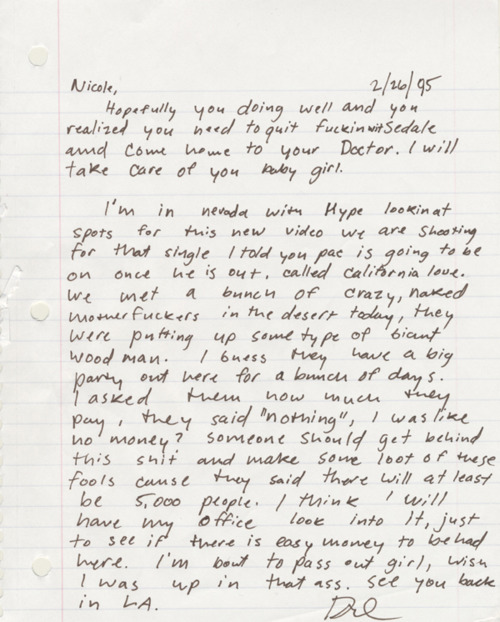 Nicole, 2/26/95
Hopefully you doing well and you
realized you need to quit fuckin wit Sedale
amd come home to your Doctor. I will
take care of you baby girl.
I'm in nevada with Hype lookin at
spots for this new video we are shooting
for that single I told you pac is going to be
on once he is out, called California love.
We met a bunch of crazy, naked
motherfuckers in the desert today, they
were putting up some type of giant
wood man. I guess they have a big
party out here for a bunch of days.
I asked them how much they
pay, they said "nothing", I was like
no money? Someone should get behind
this shit and make some loot of these
fools cause they said there will at least
be 5,000 people. I think I will
have my office look into it, just
to see if there is easy money to be had
here. I'm bout to pass out girl, wish
I was up in that ass. See you back
in LA. Dre